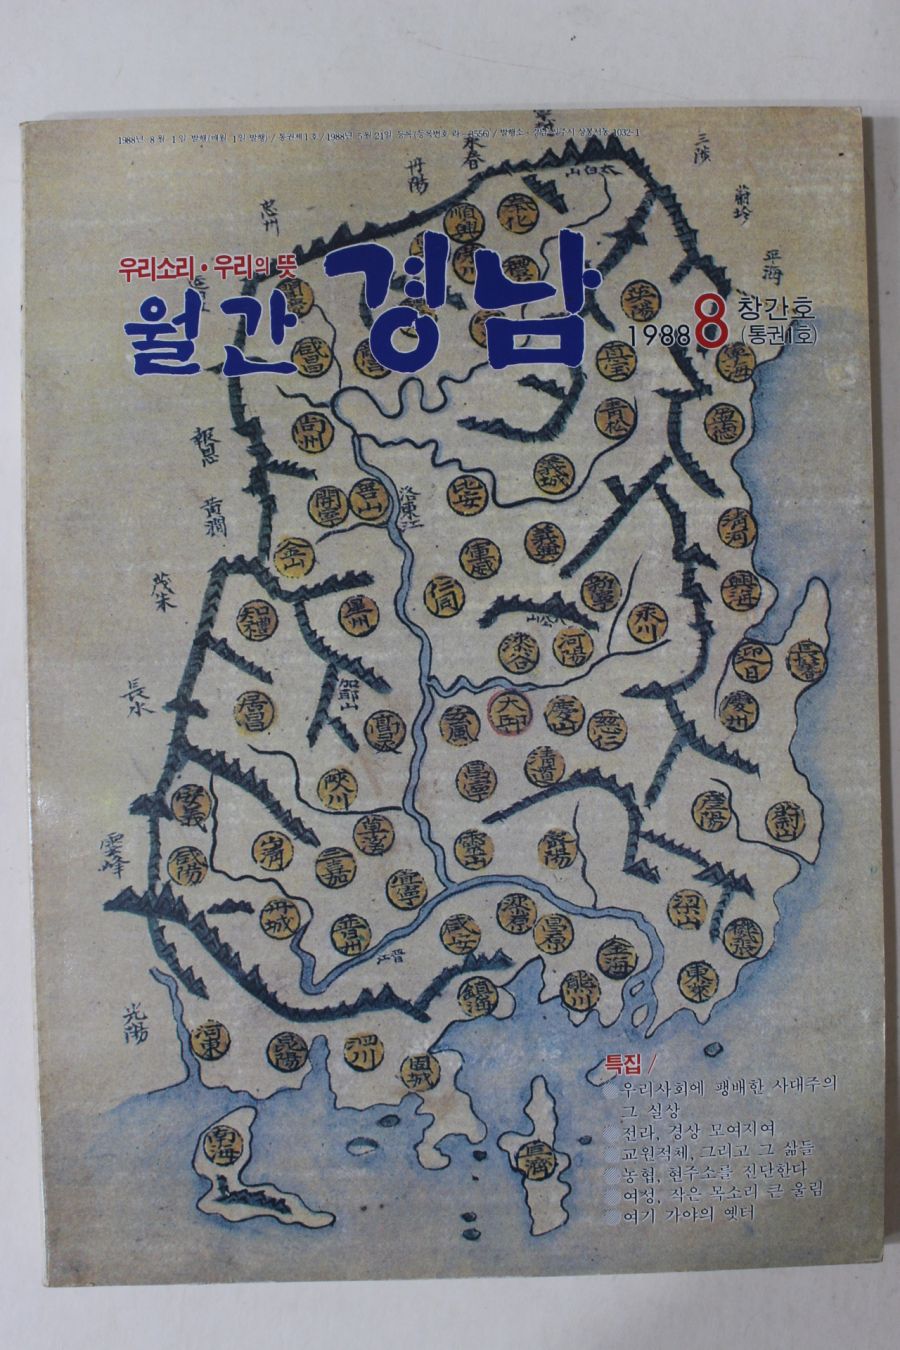 1988년 8월 1일 발행(매월 1일 발행) / 통권제1호 / 1988년 5월 21일 등록(등록번호 라-3556) / 발행소·경남 진주시 상봉서동 1032-1
우리소리·우리의 뜻
월간 경남
1988 8 창간호
(통권1호)
三陟
永春
丹陽
太白山
忠州
平海
順興
奉化
咸昌
英陽
眞宝
寧海
尙州
靑松
盈德
報恩
義城
比安
開寧
善山
洛東江
黃澗
軍威
義興
淸河
金山
仁同
興海
茂朱
知禮
星州
公山
永川
漆谷
河陽
迎日
長鬐
長水
加耶山
居昌
高灵
玄風
大邱
慶山
慈仁
慶州
昌寧
淸道
陜川
安義
彦陽
蔚山
雲峰
咸陽
山淸
三嘉
草溪
宜寧
靈山
密陽
丹城
晋州
晋江
咸安
漆原
昌原
金海
梁山
機張
東萊
鎭海
熊川
光陽
河東
昆陽
泗川
固城
南海
巨濟
특집 /
우리사회에 팽배한 사대주의
그 실상
전라, 경상 모여지여
교원적체, 그리고 그 삶들
농협, 현주소를 진단한다
여성, 작은 목소리 큰 울림
여기 가야의 옛터